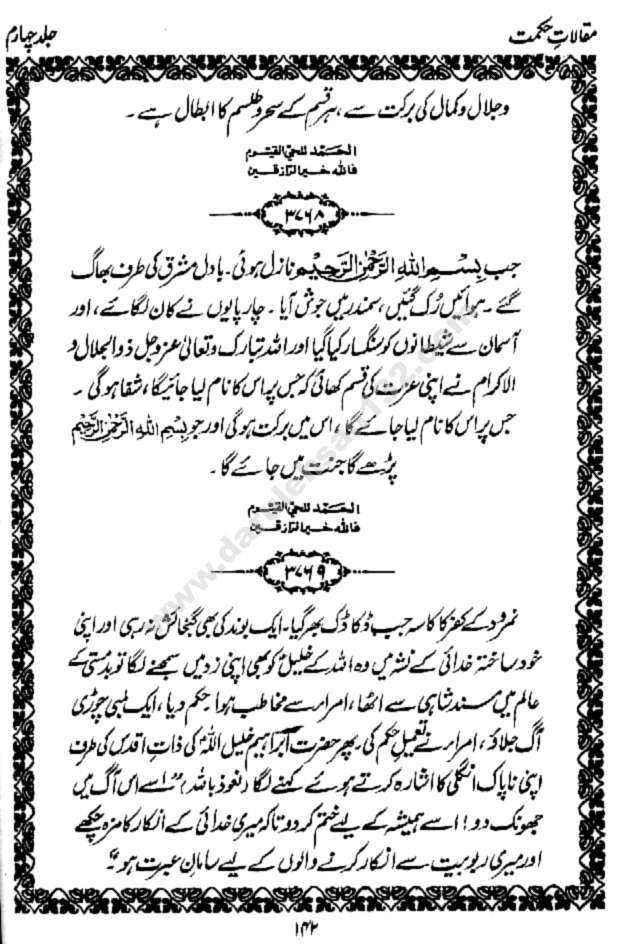 مقالاتِ حکمت
جلد چہارم
وجلال وکمال کی برکت سے، ہر قسم کے سحر و طلسم کا ابطال ہے۔
الحَمد للحیّ القیّوم
فاللہ خیر الرّازقین
۳۷۶۸
جب بِسْمِ اللهِ الرَّحْمٰنِ الرَّحِيْمِ نازل ہوئی۔ بادل مشرق کی طرف بھاگ
گئے۔ ہوائیں رُک گئیں، سمندر میں جوش آیا۔ چارپایوں نے کان لگائے، اور
آسمان سے شیطانوں کو سنگسار کیا گیا اور اللہ تبارک و تعالیٰ عزوجل ذوالجلال و
الاکرام نے اپنی عزت کی قسم کھائی کہ جس پر اس کا نام لیا جائیگا، شفا ہوگی۔
جس پر اس کا نام لیا جائے گا، اس میں برکت ہوگی اور جو بِسْمِ اللهِ الرَّحْمٰنِ الرَّحِيْمِ
پڑھے گا جنت میں جائے گا۔
الحَمد للحیّ القیّوم
فاللہ خیر الرّازقین
۳۷۶۹
نمرود کے کفر کا کاسہ جب ڈکا ڈک بھر گیا۔ ایک بوند کی بھی گنجائش نہ رہی اور اپنی
خود ساختہ خدائی کے نشہ میں وہ اللہ کے خلیلؑ کو بھی اپنی زد میں سمجھنے لگا تو بدمستی کے
عالم میں مسندِ شاہی سے اٹھا، امراء سے مخاطب ہوا حکم دیا، ایک لمبی چوڑی
آگ جلاؤ، امراء نے تعمیلِ حکم کی، پھر حضرت ابراہیم خلیل اللہؑ کی ذاتِ اقدس کی طرف
اپنی ناپاک انگلی کا اشارہ کرتے ہوئے کہنے لگا (نعوذ باللہ) "اسے اس آگ میں
جھونک دو! اسے ہمیشہ کے لیے ختم کر دو تاکہ میری خدائی کے انکار کا مزہ چکھے
اور میری ربوبیت سے انکار کرنے والوں کے لیے سامانِ عبرت ہو"۔
۱۴۲